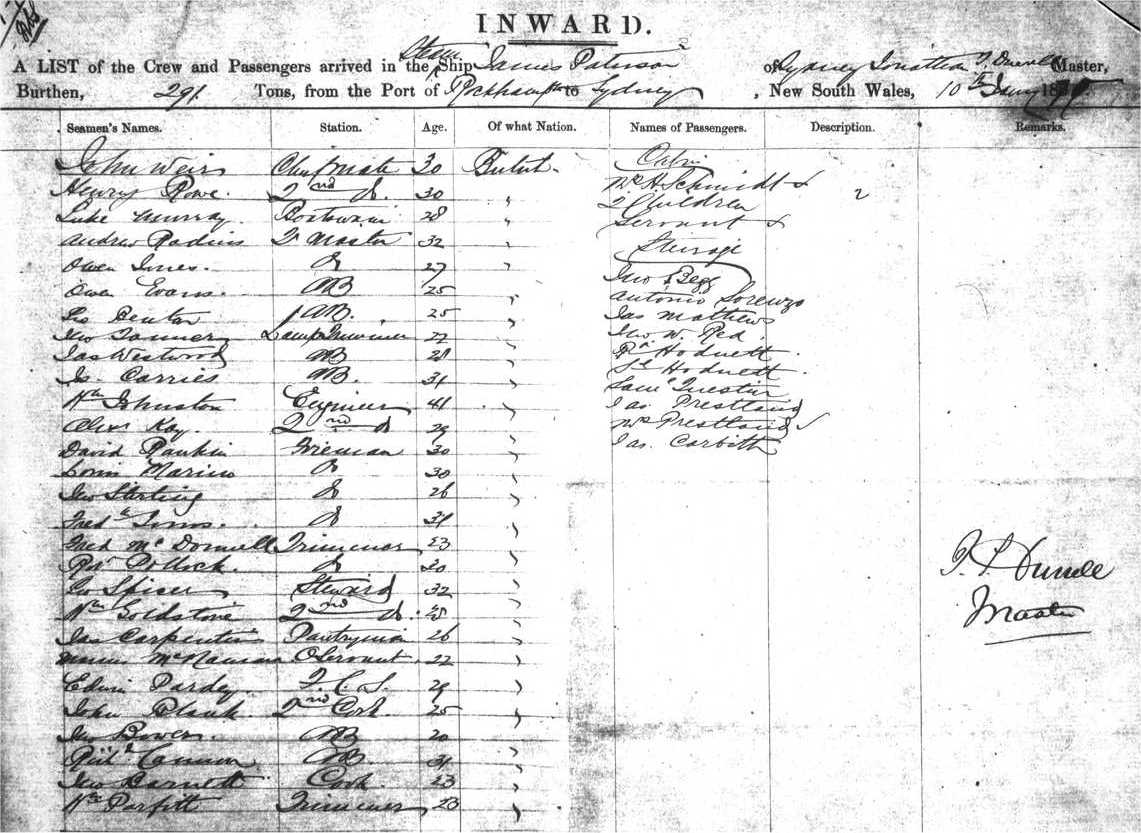 INWARD.
A LIST of the Crew and Passengers arrived in the Steam Ship James Paterson of Sydney Master,
Burthen, 291 Tons, from the Port of to Sydney, New South Wales, 10th 18
Seamen's Names. Station. Age. Of what Nation. Names of Passengers. Description. Remarks.
John Weir Chief Mate 30 British. Cabin
Henry Rowe. 2nd Do. 30 " Mrs H. Schmidt &
Luke Murray. Boatswain 28 " 2 Children 2
Andrew 32 " Servant &
Owen Jones. Do 27 " Steerage
Owen Evans. AB 25 " Jno Begg
Denton AB. 25 " Antonio Lorenzo
Jno Lamp Trimmer 22 " Jas Mathews
Jas Westwood AB 28 " Jno W.
Carries AB. 31 " Hodnett
Wm Johnston Engineer 41 " Hodnett
Alexr Kay. 2nd Do 29 " Saml
David Rankin Fireman 30 " Jas. Prestland
Marino Do 30 " Mrs Prestland
Jno Starling Do 26 " Jas. Corbitt
Fredk Do 31 "
McDonnell Trimmer 23 "
Robt Pollock. Do 20 "
Geo Spicer Steward 32 "
Wm Goldstone 2nd Do. 28 "
Jas Carpenter Pantryman 26 "
Servant. 22 "
Edwin Pardey. 29 "
John Blank 2nd Cook. 25 "
Jno Bower. AB 20 "
Cannon AB. 31 "
Jno Barnett Cook 23 "
Wm Parfitt Trimmer 23 "
Master